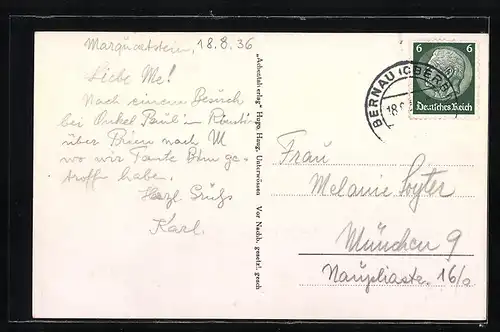 Marquartstein, 18.8.36
Liebe Me!
Nach einem Besuch
bei Onkel Paul in
über Prien nach M
wo wir Tante ge-
troffen haben.
Herzl. Grüße
Karl.
"Achental-Verlag" Hugo Haug, Unterwössen Vor Nachb. gesetzl. gesch
BERNAU (OBERB
18.8
6 6
Deutsches Reich
Frau
Melanie Soyter
München 9
Naupliastr. 16/a